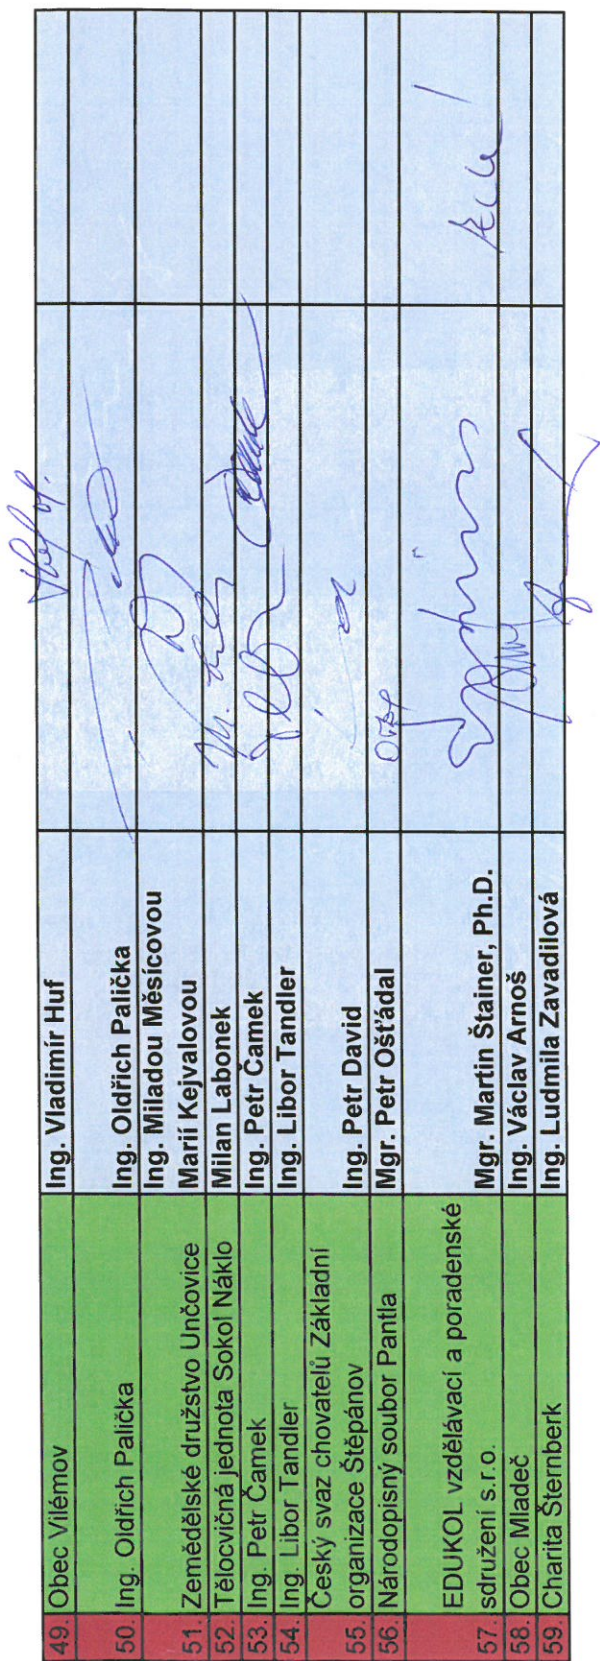 49. Obec Vilémov Ing. Vladimír Huf
50. Ing. Oldřich Palička Ing. Oldřich Palička
Ing. Miladou Měsícovou
51. Zemědělské družstvo Unčovice Marií Kejvalovou
52. Tělocvičná jednota Sokol Náklo Milan Labonek
53. Ing. Petr Čamek Ing. Petr Čamek
54. Ing. Libor Tandler Ing. Libor Tandler
Český svaz chovatelů Základní
55. organizace Štěpánov Ing. Petr David
56. Národopisný soubor Pantla Mgr. Petr Ošťádal
EDUKOL vzdělávací a poradenské
57. sdružení s.r.o. Mgr. Martin Štainer, Ph.D.
58. Obec Mladeč Ing. Václav Arnoš
59. Charita Šternberk Ing. Ludmila Zavadilová